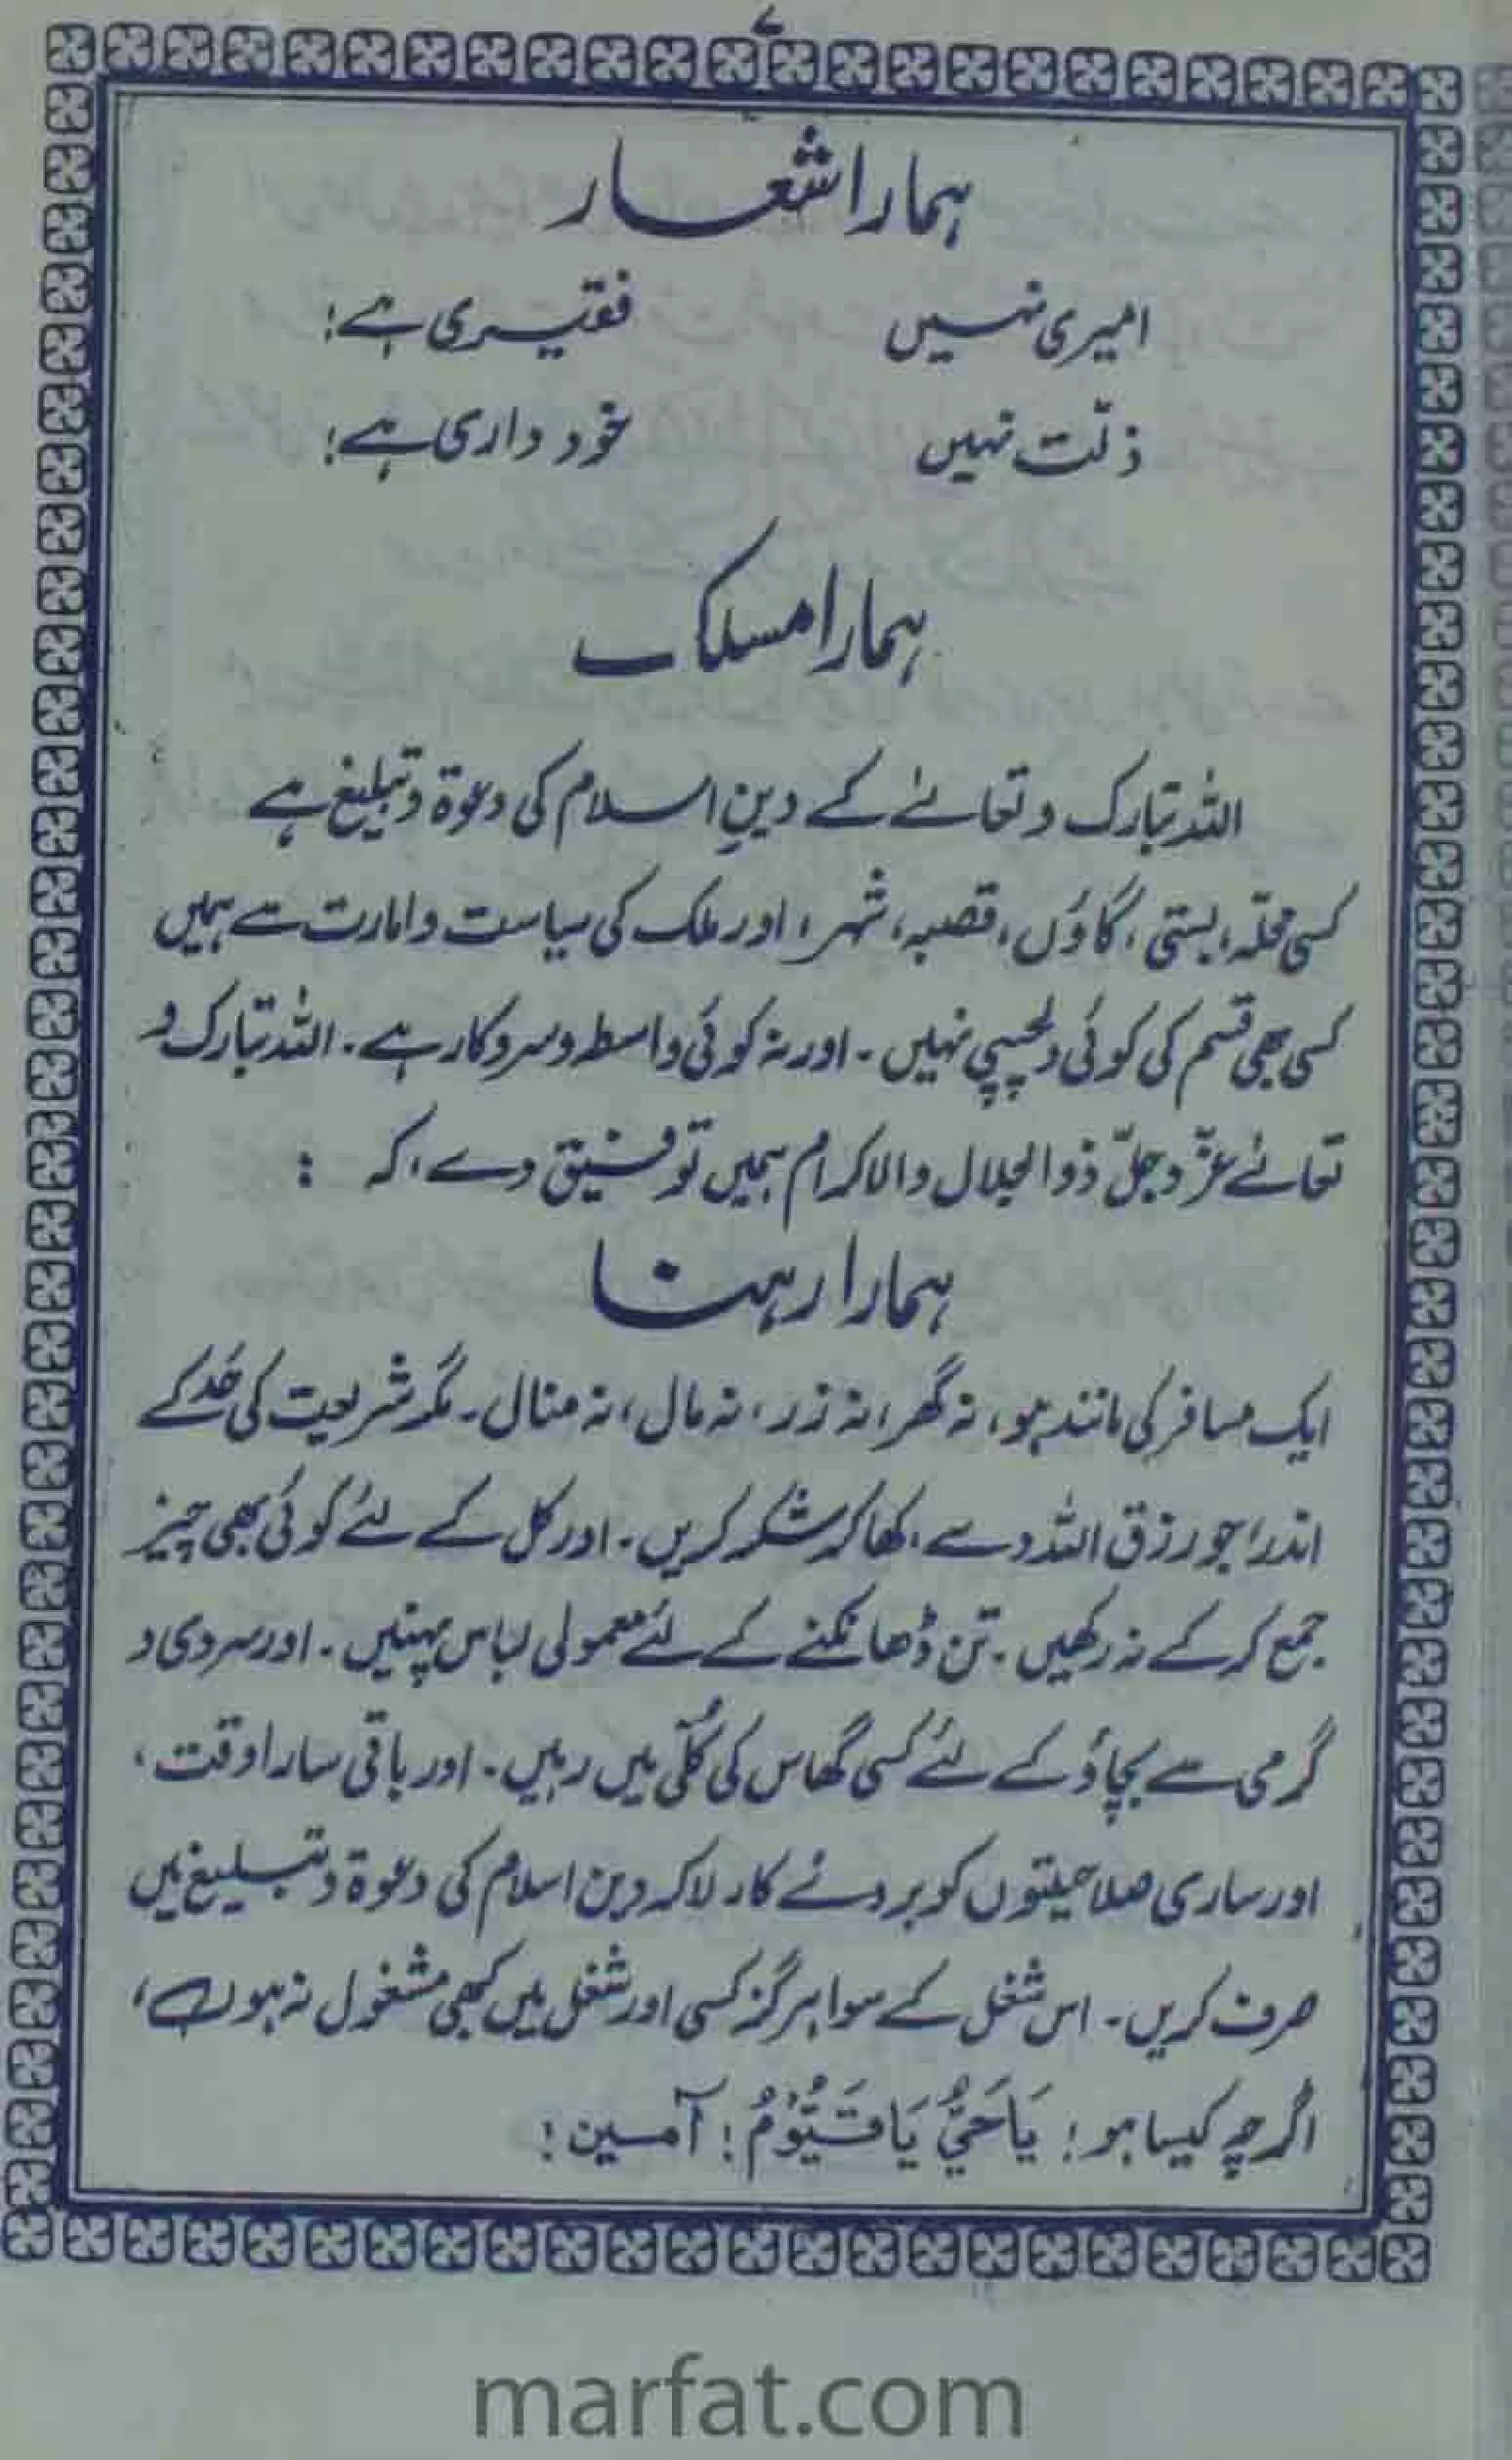 ۷
ہمارا شعار
امیری نہیں فقیری ہے؛
ذلّت نہیں خود داری ہے؛
ہمارا مسلک
اللہ تبارک و تعالےٰ کے دینِ اسلام کی دعوۃ و تبلیغ ہے
کسی محلّہ، بستی، گاؤں، قصبہ، شہر، اور ملک کی سیاست و امارت سے ہمیں
کسی بھی قسم کی کوئی دلچسپی نہیں۔ اور نہ کوئی واسطہ و سروکار ہے۔ اللہ تبارک و
تعالےٰ عزّ و جلّ ذوالجلال والاکرام ہمیں توفیق دے، کہ :
ہمارا رہنا
ایک مسافر کی مانند ہو، نہ گھر، نہ زر، نہ مال، نہ منال۔ مگر شریعت کی حَد کے
اندر، جو رزق اللہ دے، کھا کر شکر کریں۔ اور کل کے لئے کوئی بھی چیز
جمع کر کے نہ رکھیں۔ تن ڈھانکنے کے لئے معمولی لباس پہنیں۔ اور سردی و
گرمی سے بچاؤ کے لئے کسی گھاس کی کُلّی میں رہیں۔ اور باقی سارا وقت،
اور ساری صلاحیتوں کو بروئے کار لا کر دین اسلام کی دعوۃ و تبلیغ میں
صرف کریں۔ اس شغل کے سوا ہرگز کسی اور شغل میں کبھی مشغول نہ ہوں،
اگرچہ کیسا ہو؛ یَا حَیُّ یَا قَیُّوْمُ؛ آمین؛
marfat.com